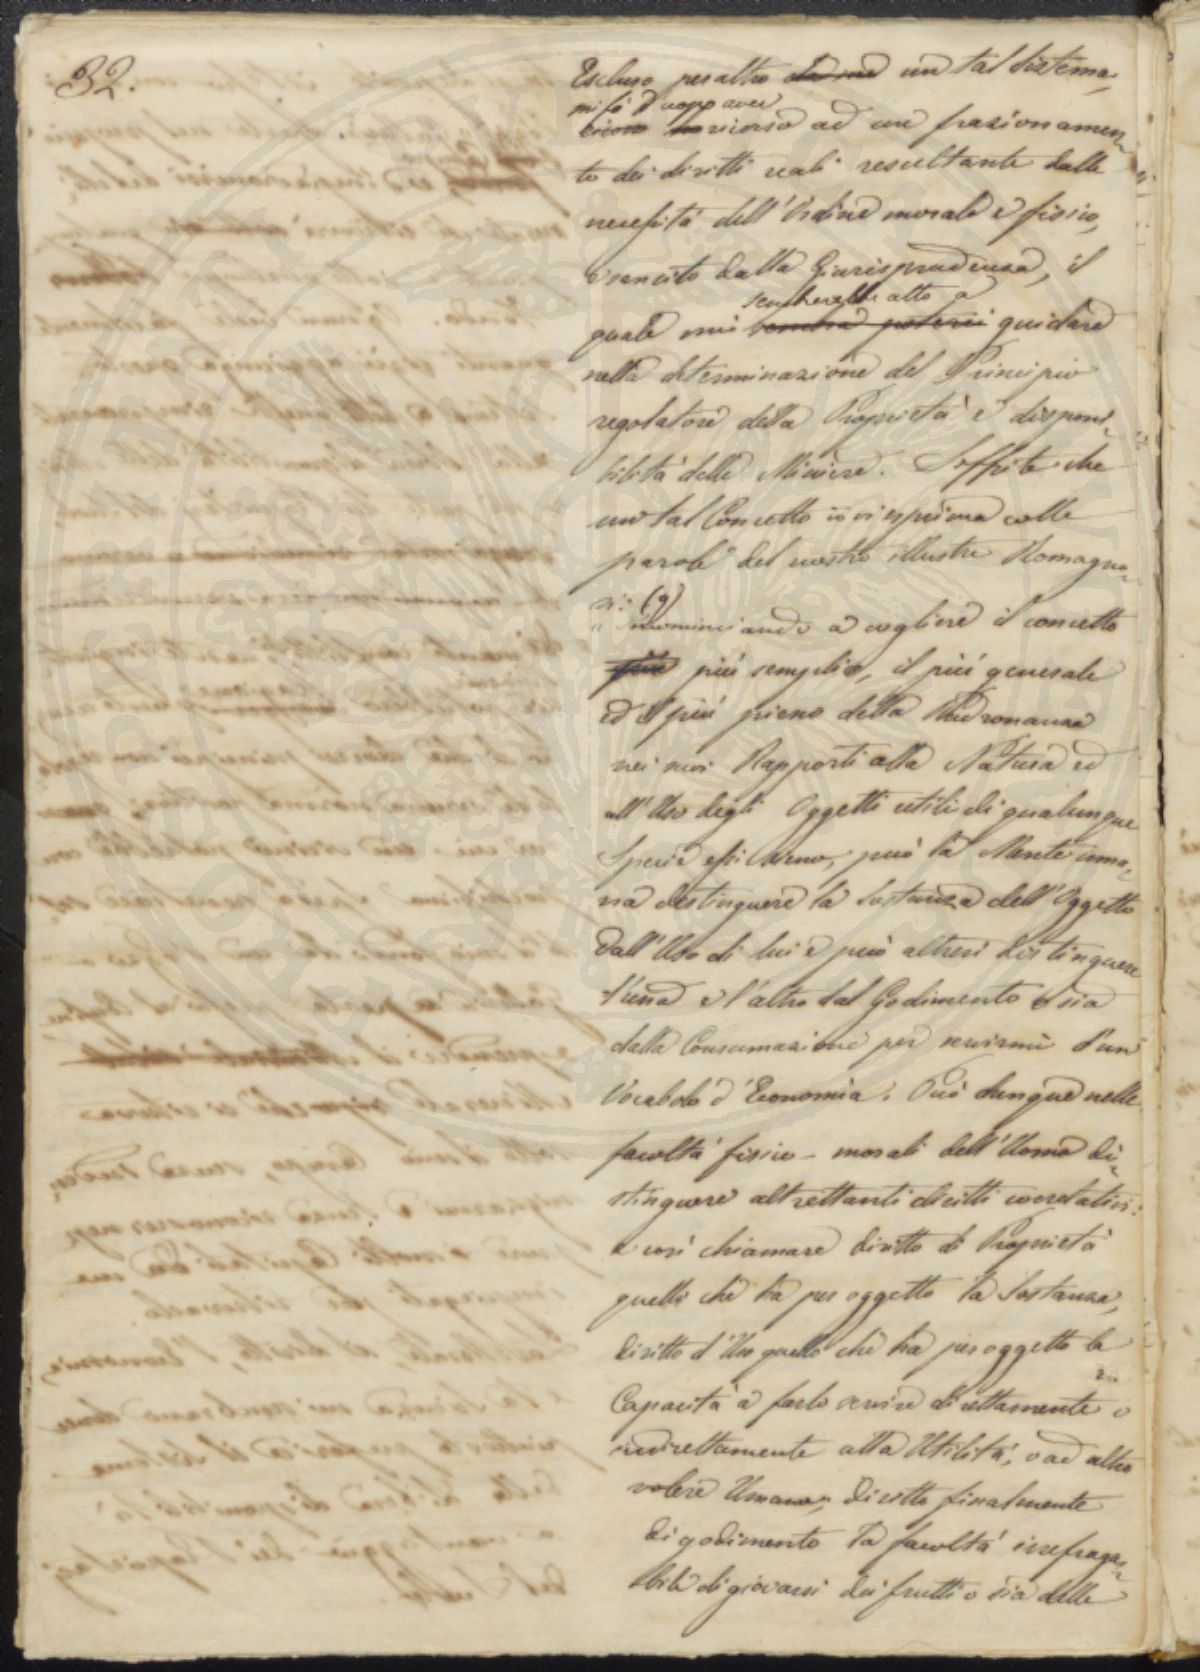 32.
Escluso peraltro da me un tal sistema,
mi fa d'uopo aver
ricorso ad un frazionamen-
to dei diritti reali resultante dalle
necessità dell'Ordine morale e fisico,
e sancito dalla Giurisprudenza, il
sembrerebbe atto a
quale mi sembra potersi guidare
nella determinazione del Principio
regolatore della Proprietà e disponi-
bilità delle Miniere. Soffrite che
un tal Concetto io vi esprima colle
parole del nostro illustre Romagno-
si: (9)
Incominciando a cogliere il concetto
più semplice, il più generale
ed il più pieno della Padronanza
nei suoi Rapporti alla Natura ed
all'Uso degli Oggetti utili di qualunque
Specie essi siano, può la Mente uma-
na distinguere la Sostanza dell'Oggetto
dall'Uso di lui e può altresì distinguere
l'una e l'altro dal Godimento o sia
dalla Consumazione per servirmi d'un
Vocabolo d'Economia. Può dunque nelle
facoltà fisico-morali dell'Uomo di-
stinguere altrettanti diritti correlativi:
e così chiamare diritto di Proprietà
quello che ha per oggetto la Sostanza,
diritto d'Uso quello che ha per oggetto la
Capacità a farlo servire direttamente o
indirettamente alla Utilità, o ad altro
volere Umano; diritto finalmente
di godimento la facoltà irrefraga-
bile di giovarsi dei frutti o sia delle